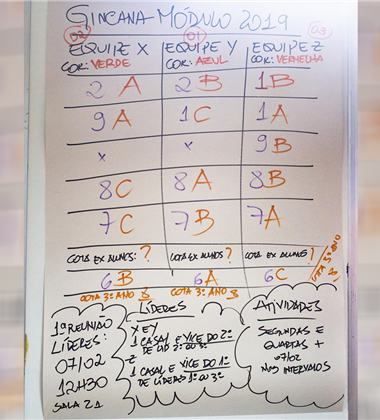 GINCANA MÓDULO 2019
02 01 03
EQUIPE X EQUIPE Y EQUIPE Z
COR: VERDE COR: AZUL COR: VERMELHA
2 A 2 B 1 B
9 A 1 C 1 A
x x 9 B
8 C 8 A 8 B
7 C 7 B 7 A
COTA EX ALUNOS: ? COTA EX ALUNOS ? COTA EX ALUNOS !
6 B 6 A 6 C
COTA 3º ANO COTA 3º ANO COTA 3º ANO
1ª REUNIÃO
LÍDERES:
07/02
12H30
SALA 21
LÍDERES
X E Y
1 CASAL E VICE DO 2º
DE LID 2º OU 3º
Z
1 CASAL E VICE DO 1º
DE LÍDERES 1º OU 3º
ATIVIDADES
SEGUNDAS E
QUARTAS +
07/02
NOS INTERVALOS